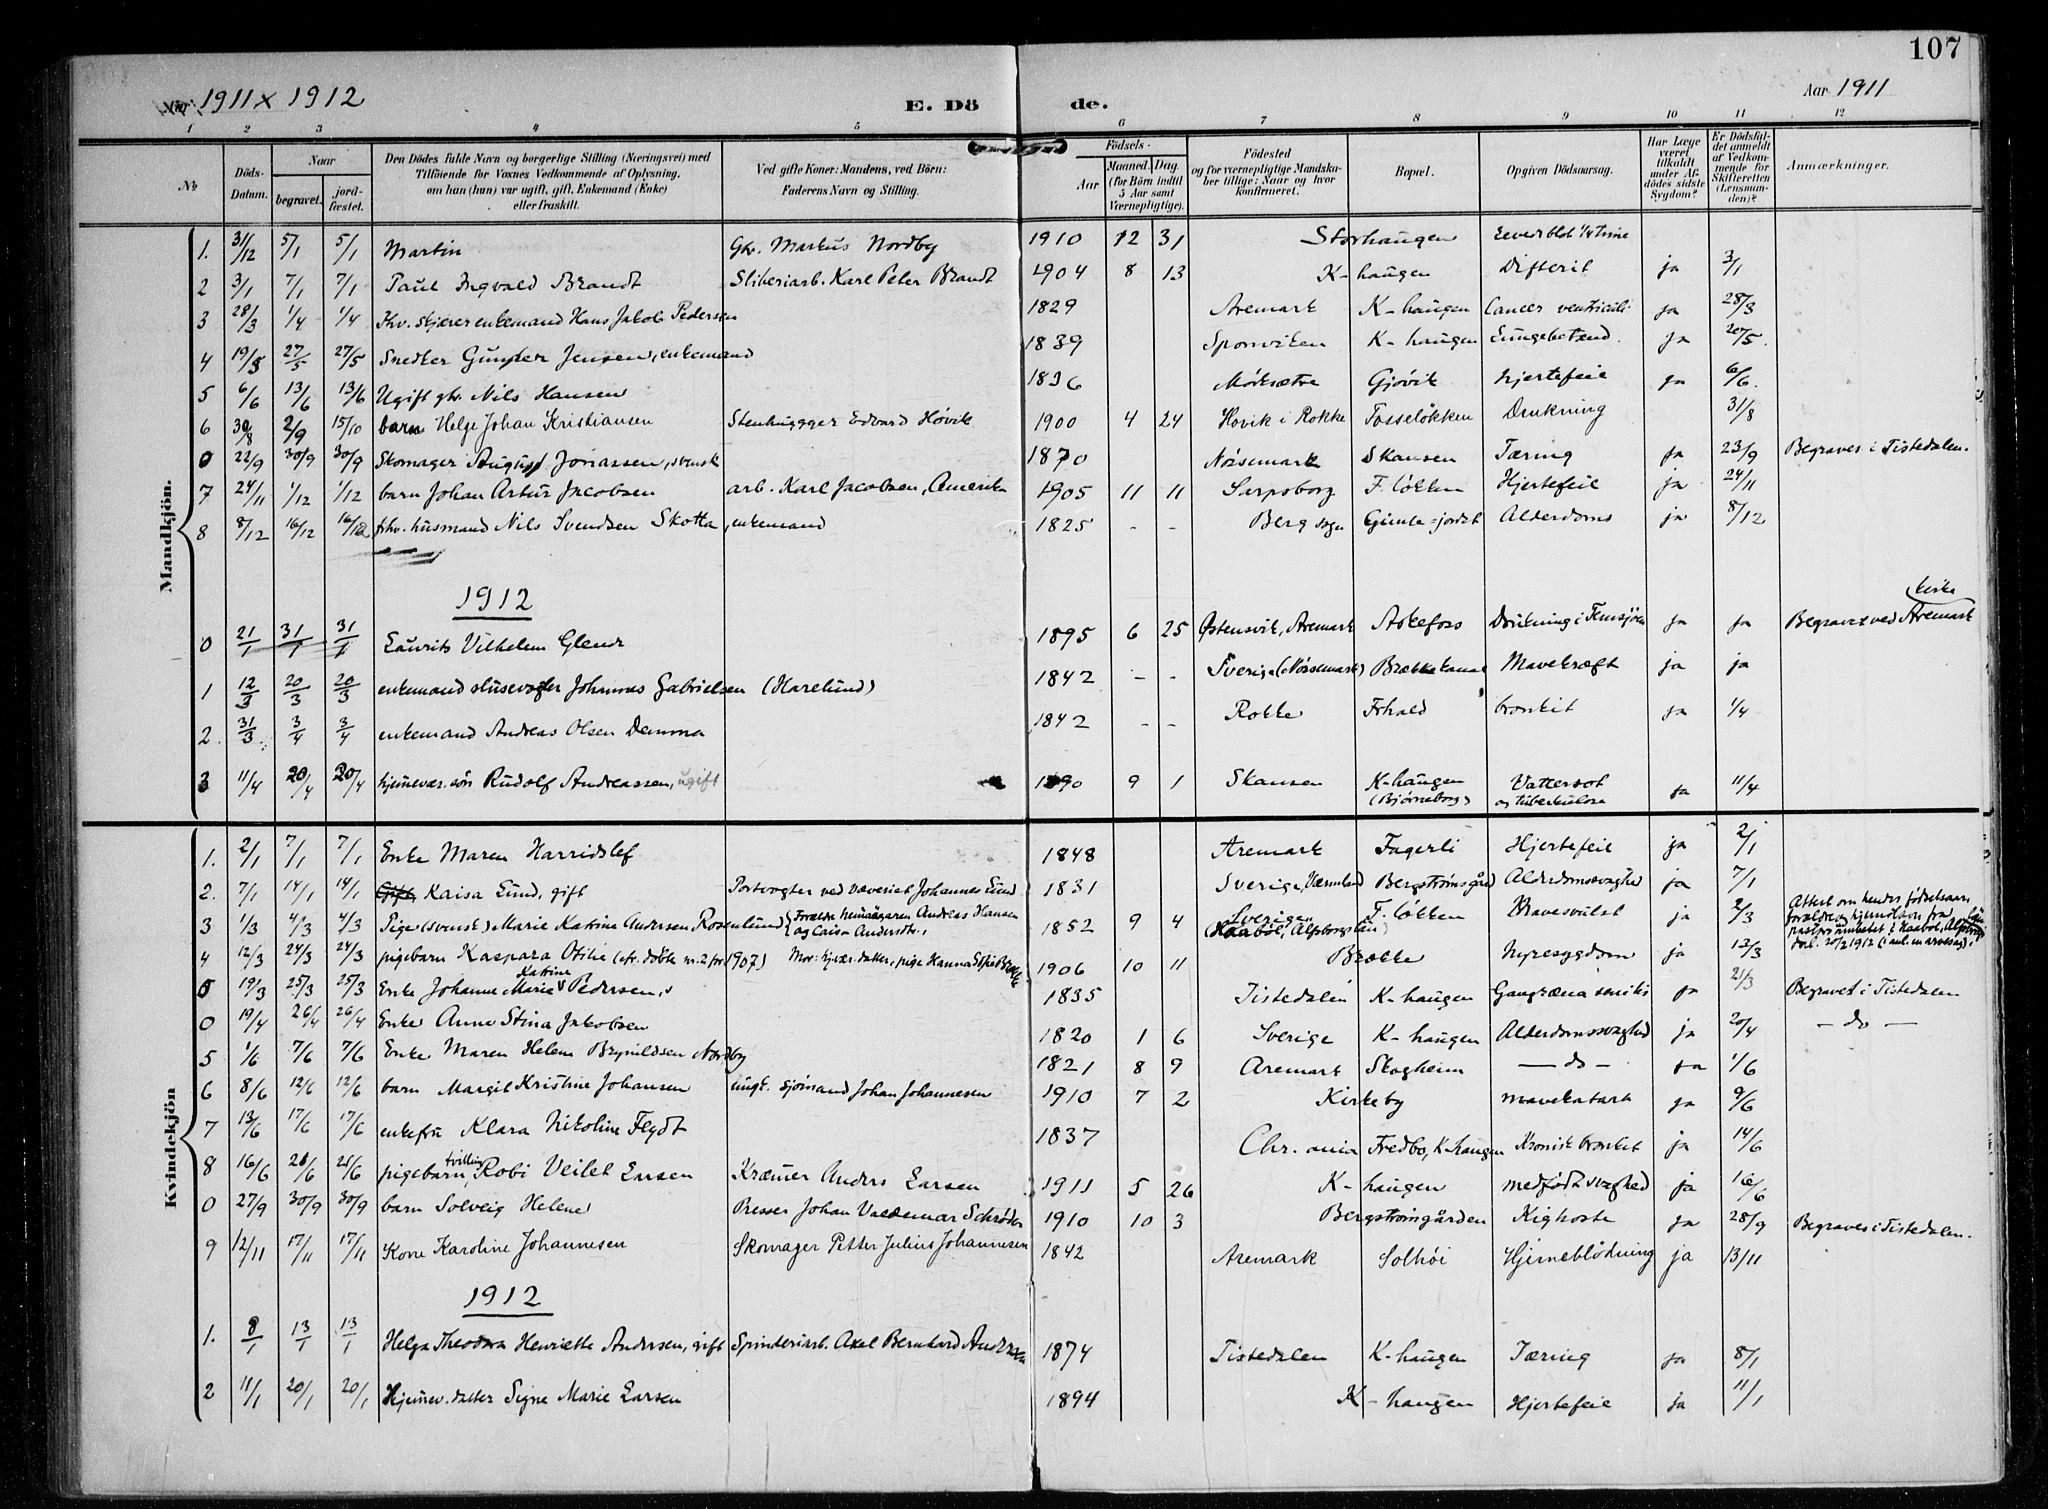 107
1911 x 1912 E. Dö de. Aar 1911
1 2 3 4 5 6 7 8 9 10 11 12
No Döds-Datum. Naar begravet. jord-fæstet. Den Dödes fulde Navn og borgerlige Stilling (Næringsvei) med Tilföiende for Voxnes Vedkommende af Oplysning, om han (hun) var ugift, gift, Enkemand (Enke) eller fraskilt. Ved gifte Koner: Mandens, ved Börn: Faderens Navn og Stilling. Födsels- Aar Maaned. Dag. (for Börn indtil 5 Aar samt Værnepligtige). Födested og for værnepligtige Mandskaber tillige: Naar og hvor konfirmeret. Bopæl. Opgiven Dödsaarsag. Har Læge været tilkaldt under Afdödes sidste Sygdom? Er Dödsfaldet anmeldt af Vedkommende for Skifteretten (Lensmanden)? Anmærkninger.
Mandkjön.
1. 31/12 5/1 5/1 Martin Gbr. Markus Nordby 1910 12 31 Storhaugen Levet blot 1/4 time
2 3/1 7/1 7/1 Paul Ingvald Brandt Sliberiarb. Karl Peter Brandt 1904 8 13 K-haugen Difterit ja 3/1
3 28/3 1/4 1/4 Fhv. skjærer enkemand Hans Jakob Pedersen 1829 Aremark K-haugen Cancer ventriculi ja 28/3
4 19/5 27/5 27/5 Snedker Gunder Jensen, enkemand 1839 Sponviken K-haugen Lungebetænd. ja 20/5
5 6/6 13/6 13/6 Ugift gbr. Nils Hansen 1836 Mörksætre Gjövik hjertefeil ja 6/6
6 30/8 2/9 15/10 barn Helge Johan Kristiansen Stenhugger Edvard Høvik 1900 4 24 Hovik i Rokke Fosseløkken Drukning 31/8
0 22/9 30/9 30/9 Skomager August Jonassen, svensk 1870 Nössemark Skansen Tæring ja 23/9 Begraves i Tistedalen.
7 24/11 1/12 1/12 barn Johan Artur Jacobsen arb. Karl Jacobsen, Amerika 1905 11 11 Sarpsborg F. løkken Hjertefeil ja 24/11
8 8/12 16/12 16/12 fhv. husmand Nils Svendsen Skotta, enkemand 1825 - - Berg sogn Gimle-jordet Alderdoms ja 8/12
1912
0 21/1 31/1 31/1 Laurits Vilhelm Glende 1895 6 25 Østensvik, Aremark Askefoss Drukning i Femsjöen ja ja Begravet ved Aremark kirke
1 12/3 20/3 20/3 enkemand slusevogter Johannes Gabrielsen (Harelund) 1842 - - Sverige (Nössemark) Brækkekanal Mavekræft ja ja
2. 31/3 3/4 3/4 enkemand Andreas Olsen Demma 1842 - - Rokke Frhald bronkit ja 1/4
3 11/4 20/4 20/4 hjemmevær. sön Rudolf Andreassen, ugift 1890 9 1 Skansen K-haugen (Bjørneborg) Vattersot og tuberkulose ja 11/4
Kvindekjön
1. 2/1 7/1 7/1 Enke Maren Harridslef 1848 Aremark Fagerli Hjertefeil ja 2/1
2. 7/1 14/1 14/1 Gift Kaisa Lund, gift Portvogter ved væveriet Johannes Lund 1831 Sverige, Værmland Bergstrømsgård Alderdomssvaghet ja 7/1
3 1/3 4/3 4/3 Pige (svensk) Marie Katrine Andersen Rosenlund (Forældre hemägaren Andreas Hansen og Caisa Andersdtr.) 1852 9 4 Sverige (Haabøl, Älfsborgslän) F. løkken Mavesvulst ja 2/3 Attest om hendes fødselsaar, forældre og hjemstavn fra pastorsämbetet i Haabøl, Älfsborgslän
4 12/3 24/3 24/3 pigebarn Kaspara Otilie (efr. döbte nr. 2 for 1907) Mor: hjvær. datter, pige Hanna Sofie Brække 1906 10 11 Brække Nyresygdom ja 13/3
5 19/3 25/3 25/3 Enke Johanne Marie Katrine Pedersen 1835 Tistedalen K-haugen Gangræna senilis ja 21/3 Begravet i Tistedalen
0 19/4 26/4 26/4 Enke Anne Stina Jakobsen 1820 1 6 Sverige K-haugen Alderdomssvaghed ja 20/4 - do -
5 1/6 7/6 7/6 Enke Maren Helene Brynildsen Nordby 1821 8 9 Aremark Skogheim - do - ja 1/6
6 8/6 12/6 12/6 barn Margit Kristine Johansen ungk. sjömand Johan Johannesen 1910 7 2 Kirkeby mavekatarh ja 9/6
7 13/6 17/6 17/6 enkefru Klara Nikoline Flydt 1837 Chr.ania Fredbo, K-haugen Kronisk bronkit ja 14/6
8 16/6 21/6 21/6 pigebarn, tvilling Robi Veilet Larsen Kræmer Anders Larsen 1911 5 26 K-haugen medfødt svaghed ja 16/6
0 27/9 30/9 30/9 barn Solveig Helene Presser Johan Valdemar Schrøder 1910 10 3 Bergstrømsgården Kighoste ja 28/9 Begraves i Tistedalen.
9 12/11 17/11 17/11 Kone Karoline Johannesen Skomager Petter Julius Johannesen 1842 Aremark Solhöi Hjerneblödning ja 13/11
1912
1. 8/1 13/1 13/1 Helga Theodora Henriette Andersen, gift Spinderiarb. Axel Bernhard Andersen 1874 Tistedalen K-haugen Tæring ja 8/1
2 11/1 20/1 20/1 Hjemmev. datter Signe Marie Larsen 1894 K-haugen Hjertefeil ja 11/1